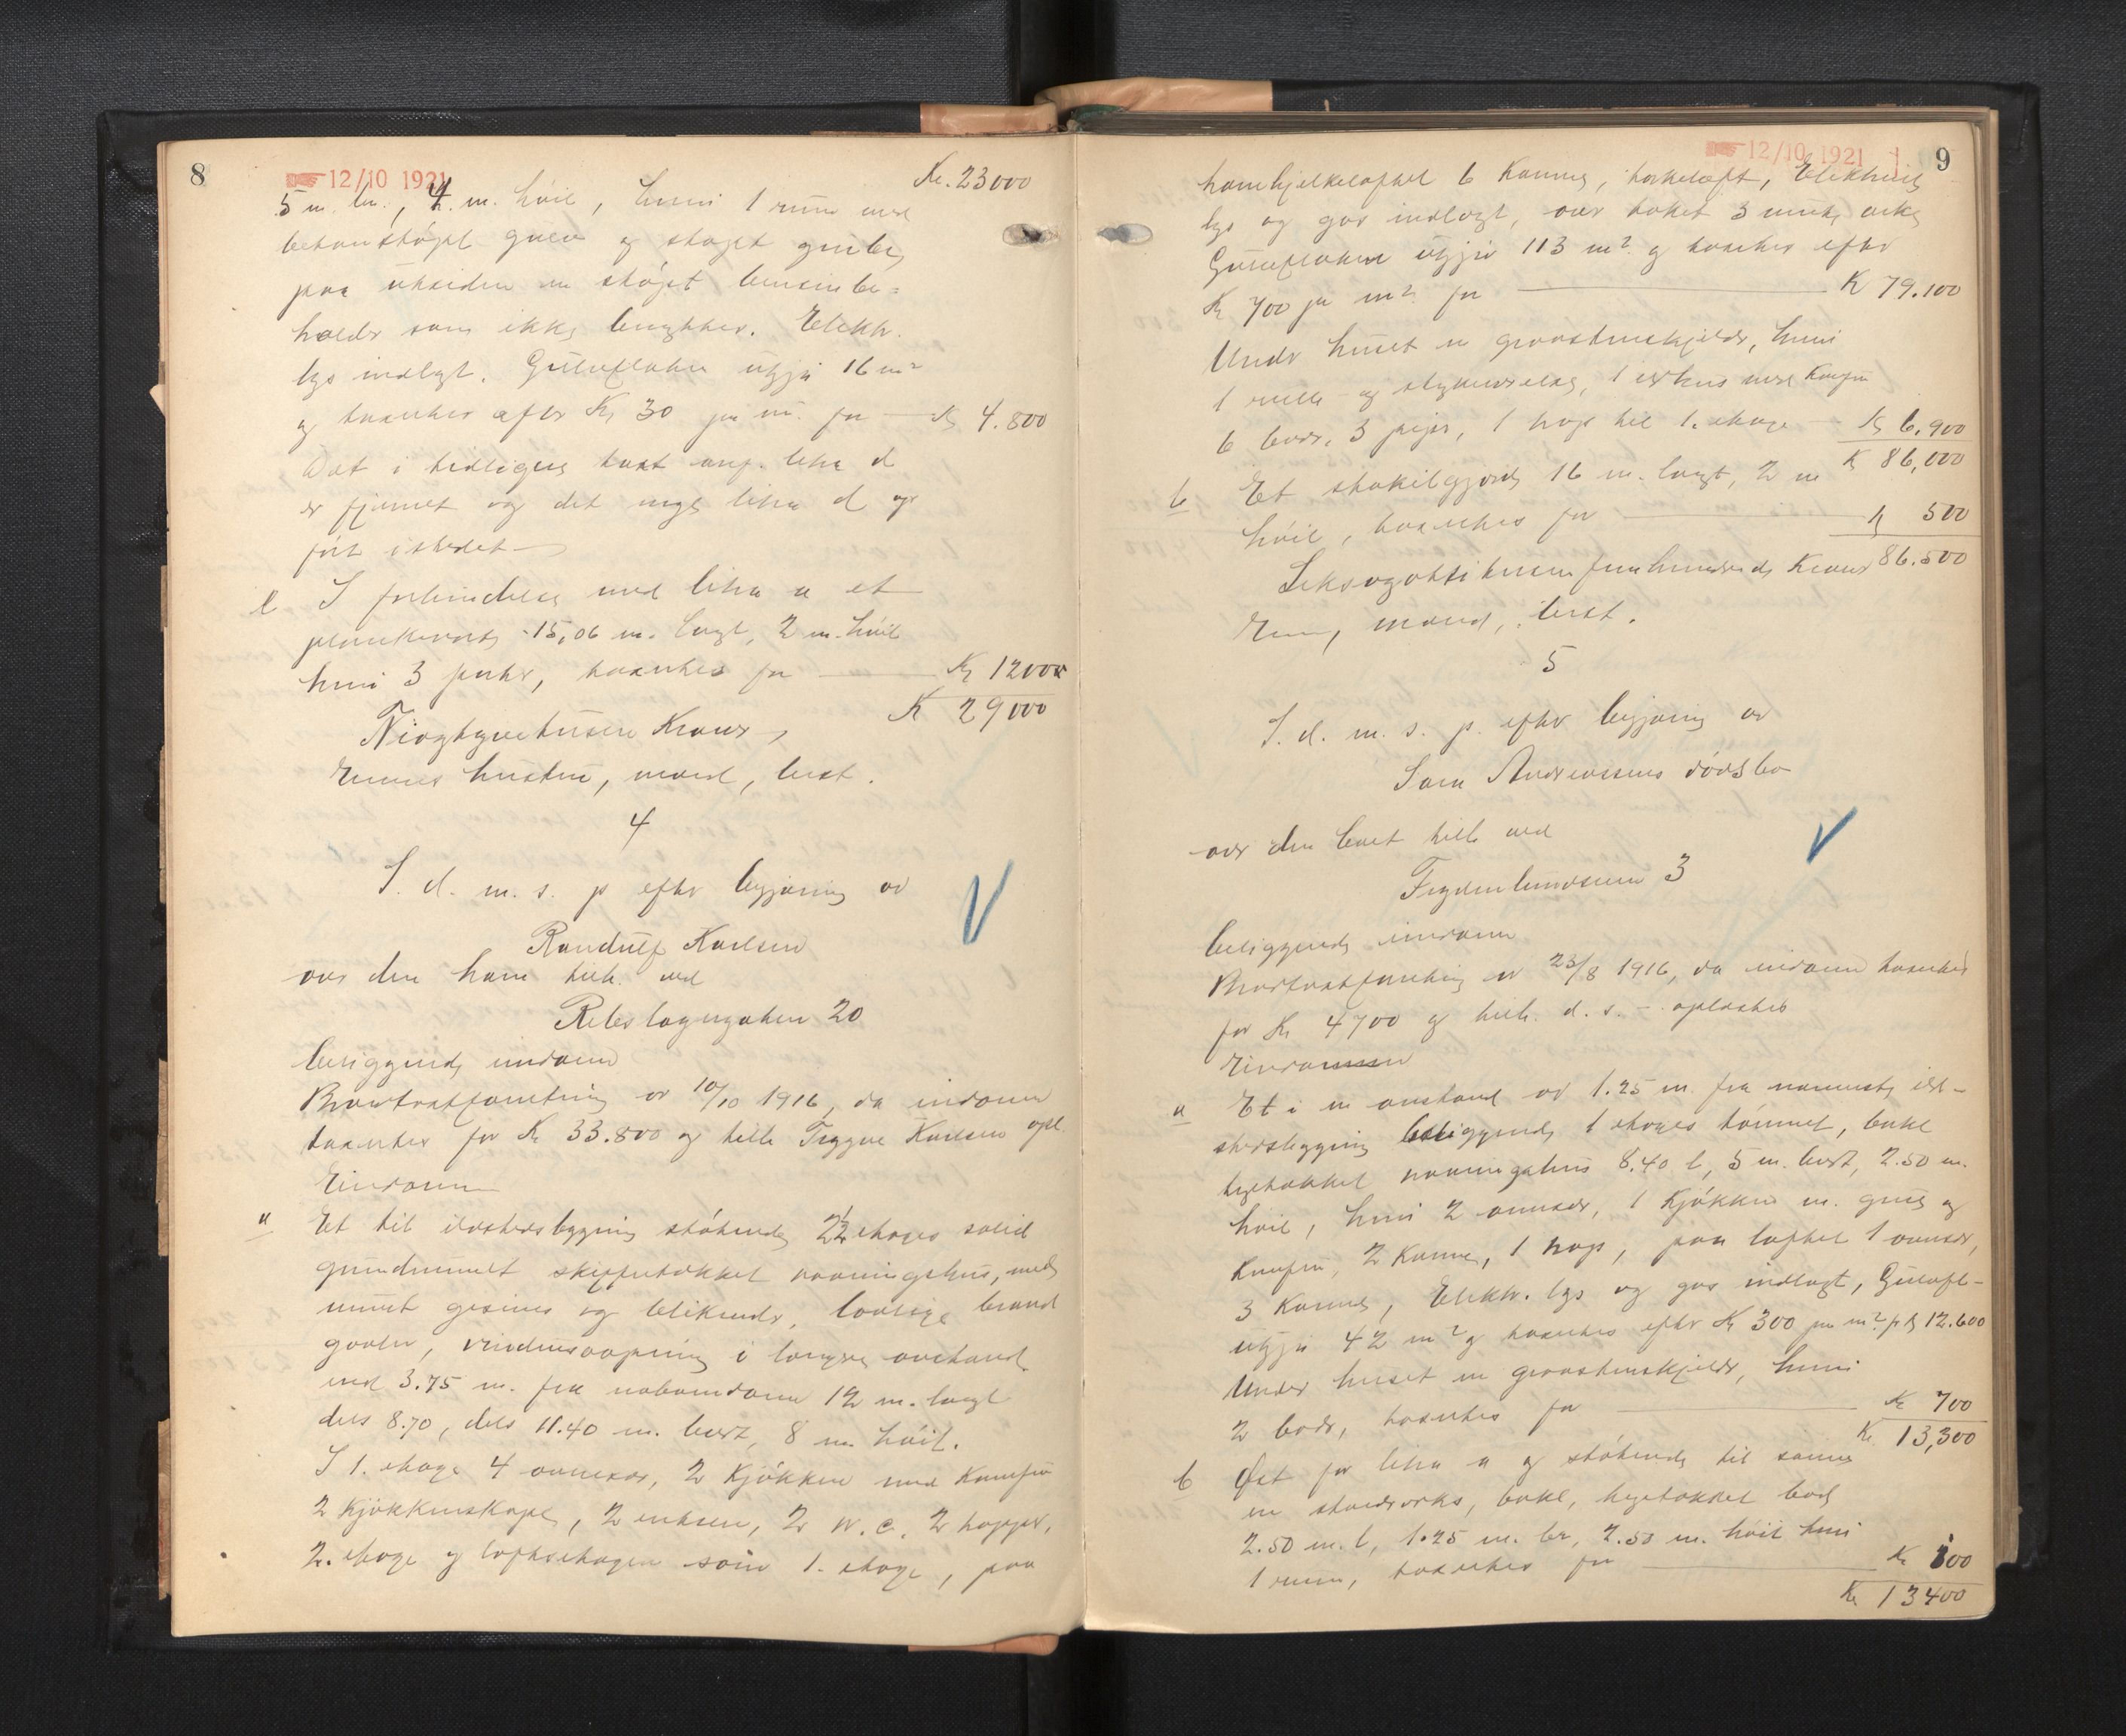 8
12/10 1921
Kr. 23000
5 m. br., 4. m. höit, hvori 1 rum med
betonstöpt gulv og støpt grube,
paa utsiden en støpt bensinbe=
holder som ikke benyttes. Elektr.
lys indlagt. Gulvflaten utgjør 16 m²
og taxertes efter Kr 30 pr m. for Kr 4.800
Det i tidligere taxt anf. litra d
er fjernet og det nye litra d op
ført istedet
e I forbindelse med litra a et
plankeverk 15,06 m. langt, 2 m. höit
hvori 3 porter, taxertes for Kr 1200
Kr 29000
Niogtyvetusen Kroner,
Eierens hustru, mand, best.
4
S. d. m. s. p efter begjæring av
Randulf Karlsen
over den ham tilh. ved
Rebslagergaten 20
beliggende eiendom
Brandtaxtforretning av 10/10 1916, da eiendommen
taxertes for Kr 33.800 og tilh. Trygve Karlsen opl.
Eiendommen
a Et til ildstedsbygning støtende 2½ etages solid
grundmuret skiffertækket vaaningshus, med
muret gesimser og blikrender, lovlige brand
gavler, vindusaapning i længere avstand
end 3.75 m. fra naboeiendom 12 m. langt
dels 8.70, dels 11.40 m. bredt, 8 m höit.
I 1. etage 4 ovnsrør, 2 Kjøkken med Komfur
2 Kjøkkenskape, 2 entreer, 2 W.C. 2 trapper,
2. etage og loftsetagen som 1. etage, paa
9
12/10 1921
hanebjelkeloftet 6 Kammer, tørkeloft, Elektrisk
lys og gas indlagt, over taket 3 murte arker
Gulvflaten utgjør 113 m² og taxertes efter
Kr 700 pr m² for Kr 79.100
Under huset en graastenskjelder, hvori
1 rulle og strykeværelse, 1 ildhus med Komfur
6 boder, 3 piper, 1 trap til 1. etage Kr 6.900
Kr 86,000
b Et stakitgjerde 16 m. langt, 2 m
höit, taxertes for Kr 500
Seksogottitusen femhundrede Kroner 86.500
Eier, mand, best.
5
S. d. m. s. p. efter begjæring av
Sara Andreassens dödsbo
over den boet tilh ved
Frydenlundsveien 3
beliggende eiendom
Brandtaxtforretning av 23/8 1916, da eiendommen taxertes
for Kr 4700 og tilh. d. s. - oplæstes
Eiendommen
a Et i en avstand av 1.25 m. fra nærmeste ild-
stedsbygning beliggende 1 etages tømmret, bakl
tegltækket vaaningshus 8.40 l, 5 m. bredt, 2.50 m.
höit, hvori 2 ovnsrør, 1 Kjøkken m. grue og
Komfur, 2 Kammer, 1 trap, paa loftet 1 ovnsrør,
3 Kammer, Elektr. lys og gas indlagt, Gulvfl-
utgjør 42 m² og taxertes efter Kr 300 pr m² p Kr 12.600
Under huset en graastenskjelder, hvori
2 boder, taxertes for Kr 700
Kr 13,300
b Øst for litra a og støtende til samme
en stenderverks, bakl, teglttækket bod
2.50 m. l, 1.25 m. br, 2.50 m. höit hvori
1 rum, taxertes for Kr 100
Kr 13400